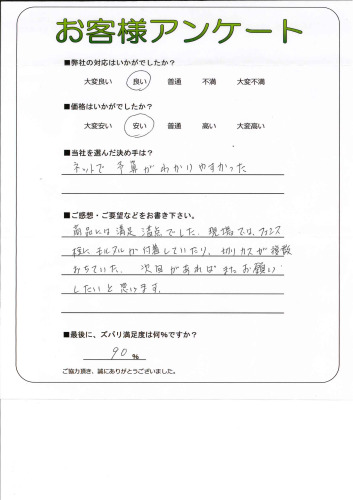 お客様アンケート
■弊社の対応はいかがでしたか?
大変良い 良い 普通 不満 大変不満
■価格はいかがでしたか?
大変安い 安い 普通 高い 大変高い
■当社を選んだ決め手は?
ネットで 予算が わかりやすかった
■ご感想・ご要望などをお書き下さい。
商品には満足 満点でした。現場では、フェンス
柱に モルタルが付着していたり、切りカスが 複数
おちていた。 次回があれば またお願い
したいと思います。
■最後に、ズバリ満足度は何%ですか?
90 %
ご協力頂き、誠にありがとうございました。